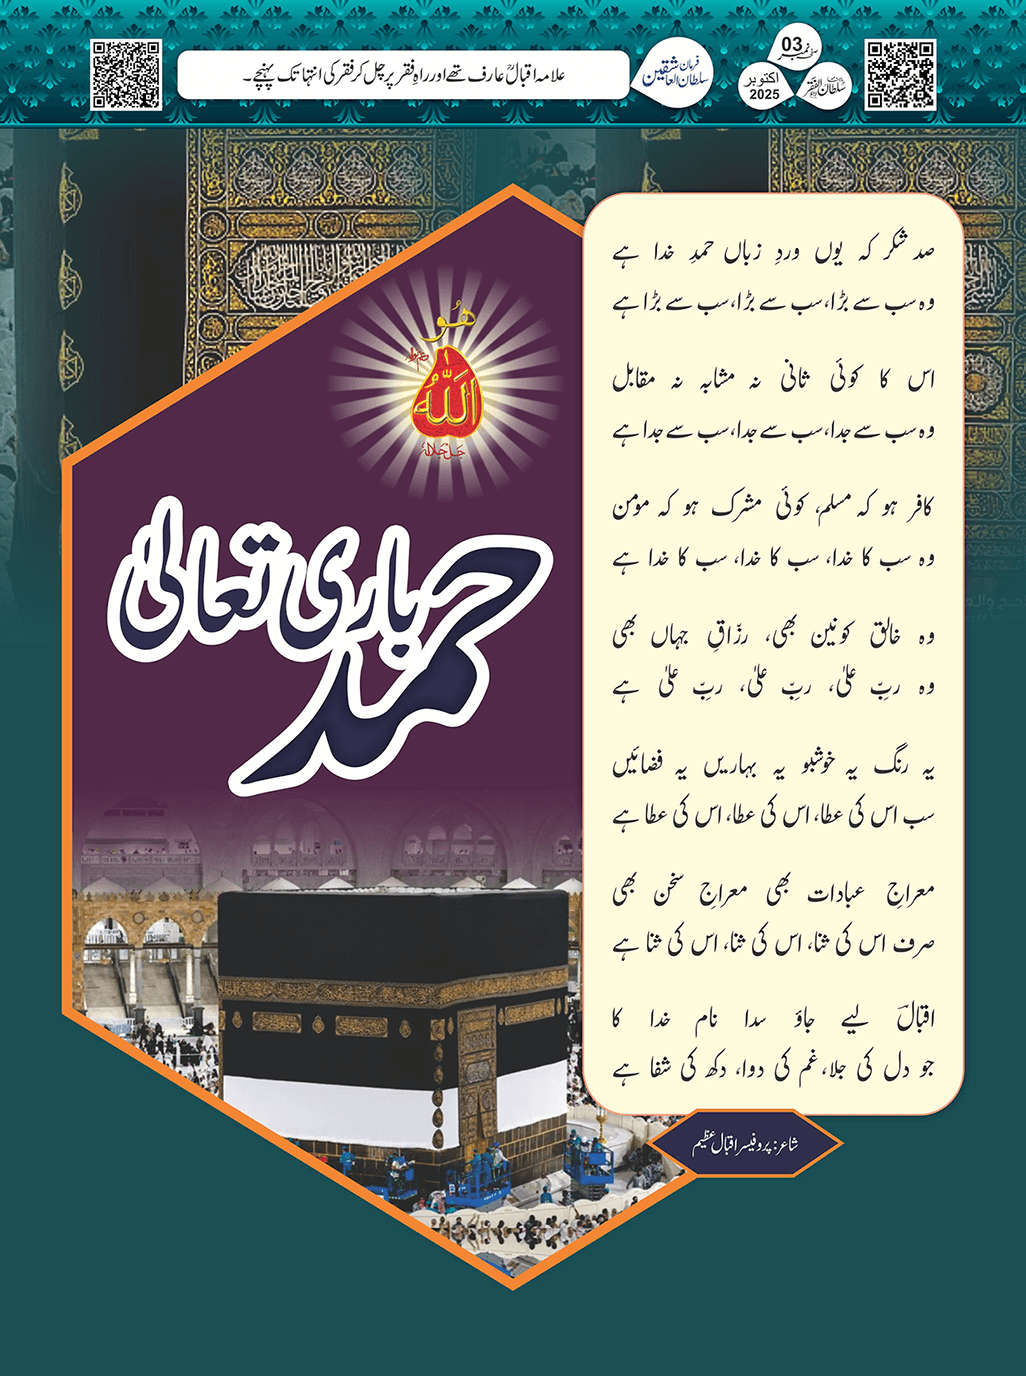 صفحہ نمبر 03
ماہنامہ سلطان الفقر لاہور
اکتوبر 2025
فرمان سلطان العاشقین
علامہ اقبالؒ عارف تھے اور راہِ فقر پر چل کر فقر کی انتہا تک پہنچے۔
ھُو
اللہ
جَلَّ جَلَالُہٗ
حمد باری تعالیٰ
صد شکر کہ یوں وردِ زباں حمدِ خدا ہے
وہ سب سے بڑا، سب سے بڑا، سب سے بڑا ہے
اس کا کوئی ثانی نہ مشابہ نہ مقابل
وہ سب سے جدا، سب سے جدا، سب سے جدا ہے
کافر ہو کہ مسلم، کوئی مشرک ہو کہ مومن
وہ سب کا خدا، سب کا خدا، سب کا خدا ہے
وہ خالق کونین بھی، رزّاقِ جہاں بھی
وہ ربِّ علیٰ، ربِّ علیٰ، ربِّ علیٰ ہے
یہ رنگ یہ خوشبو یہ بہاریں یہ فضائیں
سب اس کی عطا، اس کی عطا، اس کی عطا ہے
معراجِ عبادات بھی معراجِ سخن بھی
صرف اس کی ثنا، اس کی ثنا، اس کی ثنا ہے
اقبالؔ لیے جاؤ سدا نام خدا کا
جو دل کی جلا، غم کی دوا، دکھ کی شفا ہے
شاعر: پروفیسر اقبال عظیم